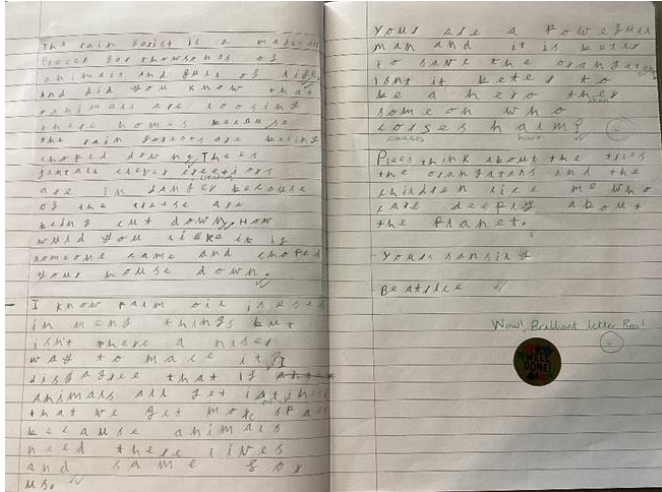 The rain forist is a magicall
for thowsones of
animals and full of life
and did you know that
animals are loosing
there homes because
the rain forests are beeing
choped down. Thees
gentall clever creetiors
are in danger because
of the treese are
being cut down. How
would you likke it if
someone came and choped
your house down.
I know parm oil is esed
in meny things but
isnt there a niser
way to make it? I
disgagree that if
animals all get
that we get more space
because animals
need there lives
and same for
us.
Your are a Powefull
man and it is beter
to save the orangatangs
isnt it beter to
be a hero then
than
someon who
corses harm?
causes harm
Plees think about the trees
the orangatans and the
children like me who
care deeply about
the planet.
Yours sansirly
Beatrice
Wow! Brilliant letter Bea!
WELL
DONE!